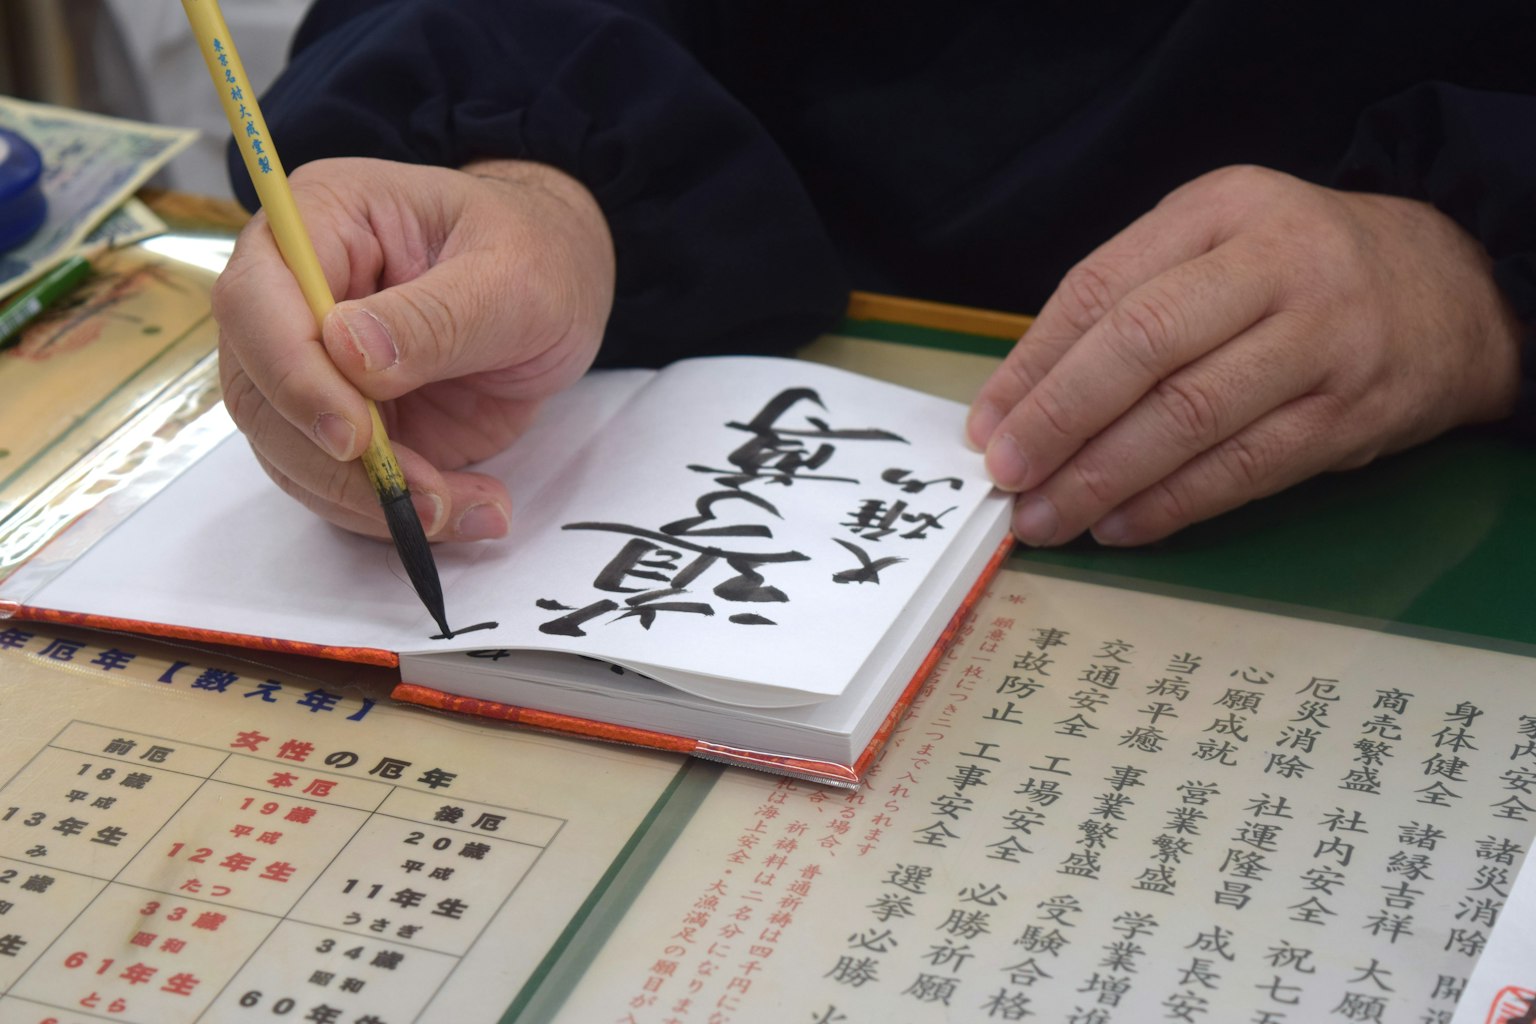 東京名村大成堂製
大雄山
年厄年【数え年】
女性の厄年
前厄
本厄
後厄
18歳
平成
13年生
み
19歳
平成
12年生
たつ
20歳
平成
11年生
うさぎ
2歳
33歳
昭和
61年生
とら
34歳
昭和
60年生
家内安全 諸災消除 開運
身体健全 諸縁吉祥 大願
商売繁盛 社内安全 祝七五
厄災消除 社運隆昌 成長安
心願成就 営業繁盛 学業増進
当病平癒 事業繁盛 受験合格
交通安全 工場安全 必勝祈願
事故防止 工事安全 選挙必勝
願意は一枚につき二つまで入れられます
る場合、普通祈祷は四千円にな
合、祈祷料は二名分になります
は海上安全・大漁満足の願目が入